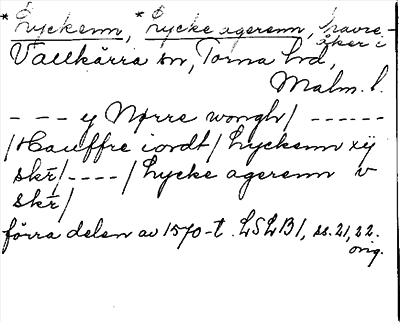 * Lyckenn, * Lycke agerenn, havre-
åker i
Vallkärra sn, Torna hd,
Malm. l.
- - - y Nørre wongh/ - - - - - -
/Hauffre iordt/ Lyckenn xij
skr/ - - - - / Lycke agerenn v
skr/
förra delen av 1570-t. LSLB1, ss. 21, 22.
orig.